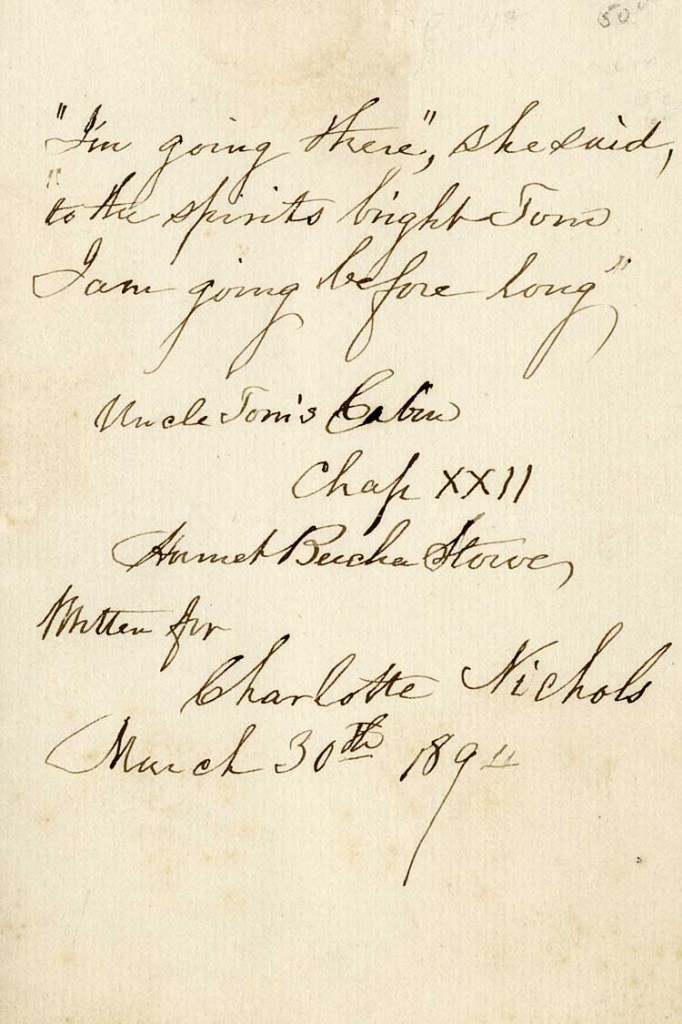 "I'm going there", she said,
"to the spirits bright Tom
I am going before long"
Uncle Tom's Cabin
Chap XXII
Harriet Beecher Stowe
Written for
Charlotte Nichols
March 30th 189